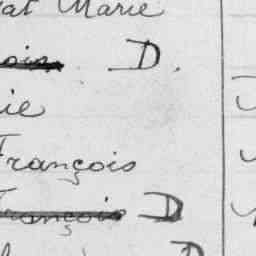 at Marie
ois D.
ie
François
François D
D